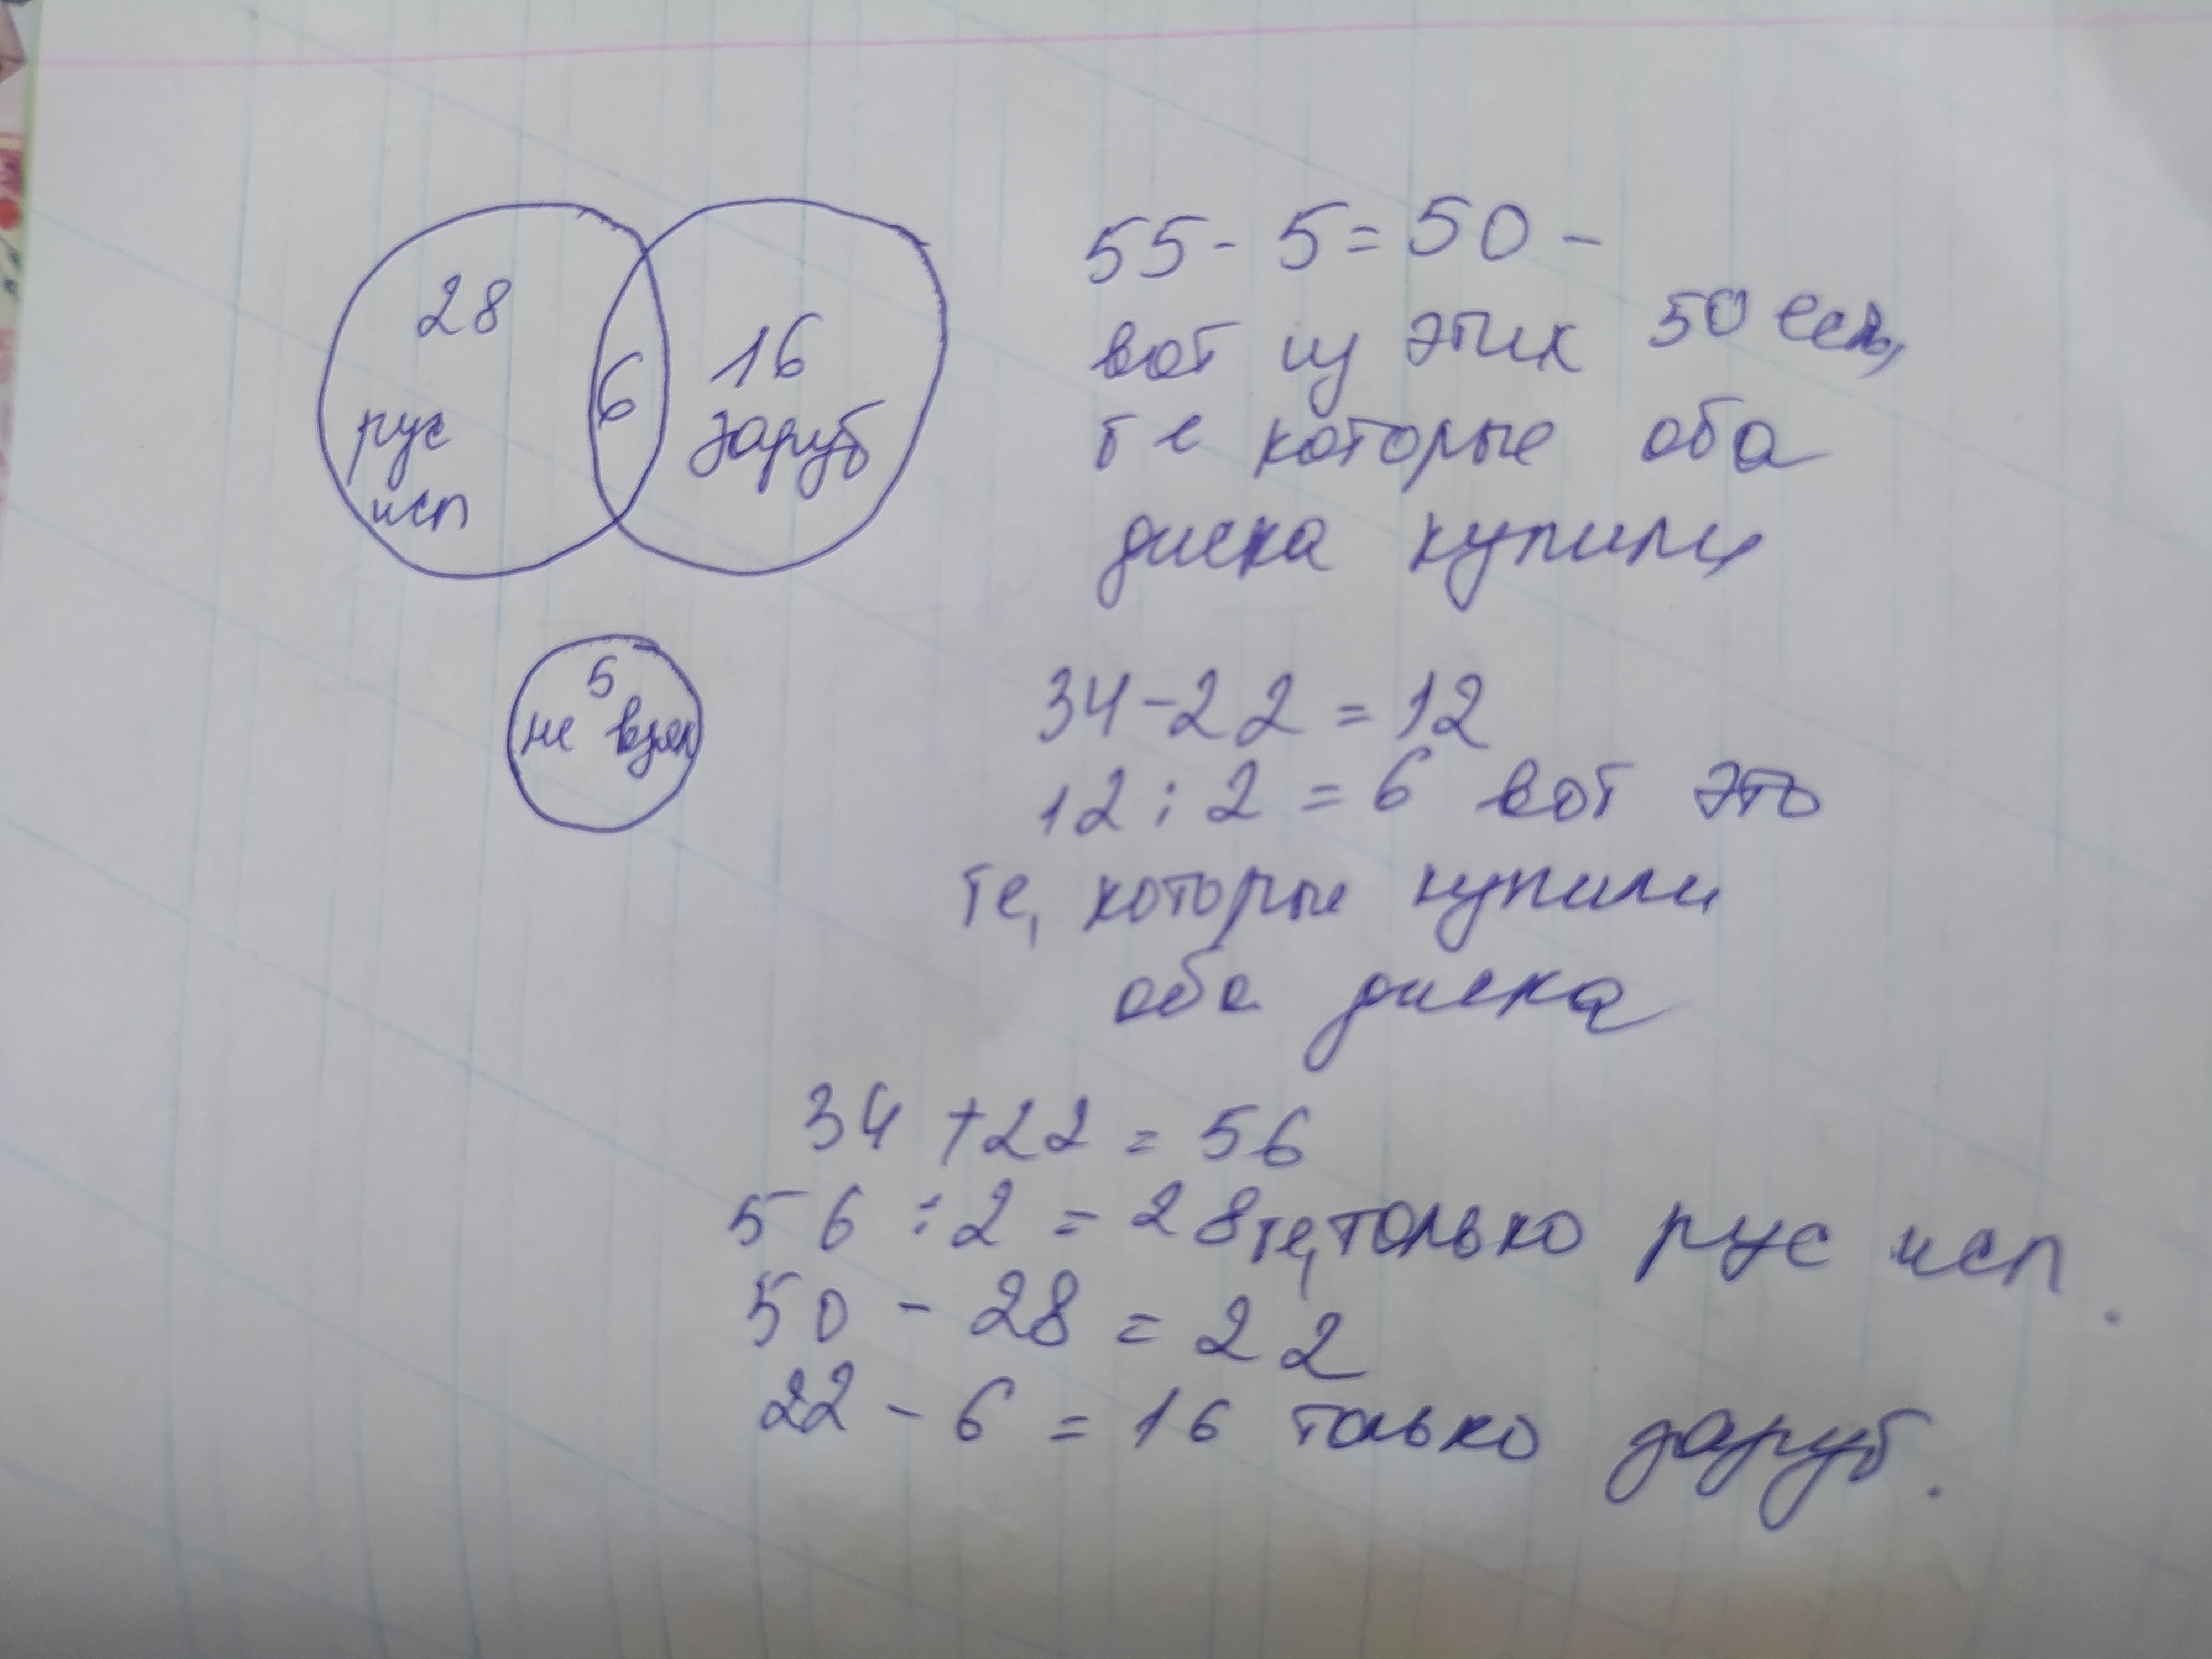 28
рус
исп
6
16
заруб
5
не взял
55 - 5 = 50 -
вот из этих 50 есть,
те которые оба
диска купили
34 - 22 = 12
12 : 2 = 6 вот это
те, которые купили
оба диска
34 + 22 = 56
56 : 2 = 28 те, только рус исп.
50 - 28 = 22
22 - 6 = 16 только заруб.